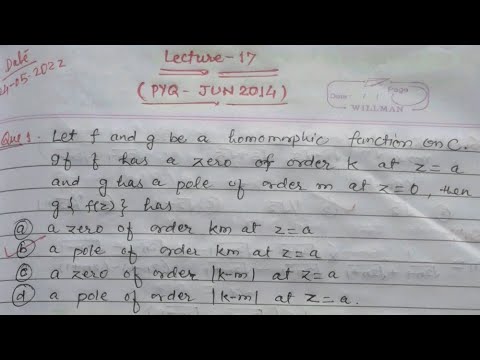 Date
24-05-2022
Lecture-17
(PYQ - JUN 2014)
Date: Page
WILLMAN
Que 1. Let f and g be a homomrphic function on C.
gf f has a zero of order k at z=a
and g has a pole of order m at z=0, then
g{f(z)} has
(a) a zero of order km at z=a
(b) a pole of order km at z=a
(c) a zero of order |k-m| at z=a
(d) a pole of order |k-m| at z=a.